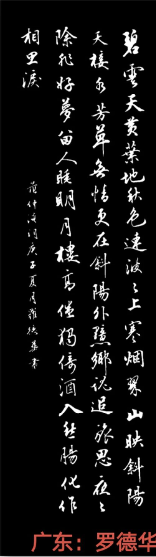 碧雲天黄葉地秋色連波波上寒烟翠山映斜陽
天接水芳草無情更在斜陽外黯鄉魂追旅思夜夜
除非好夢留人睡明月樓高休獨倚酒入愁腸化作
相思淚
范仲淹詞庚子夏月羅德華書
广东：罗德华